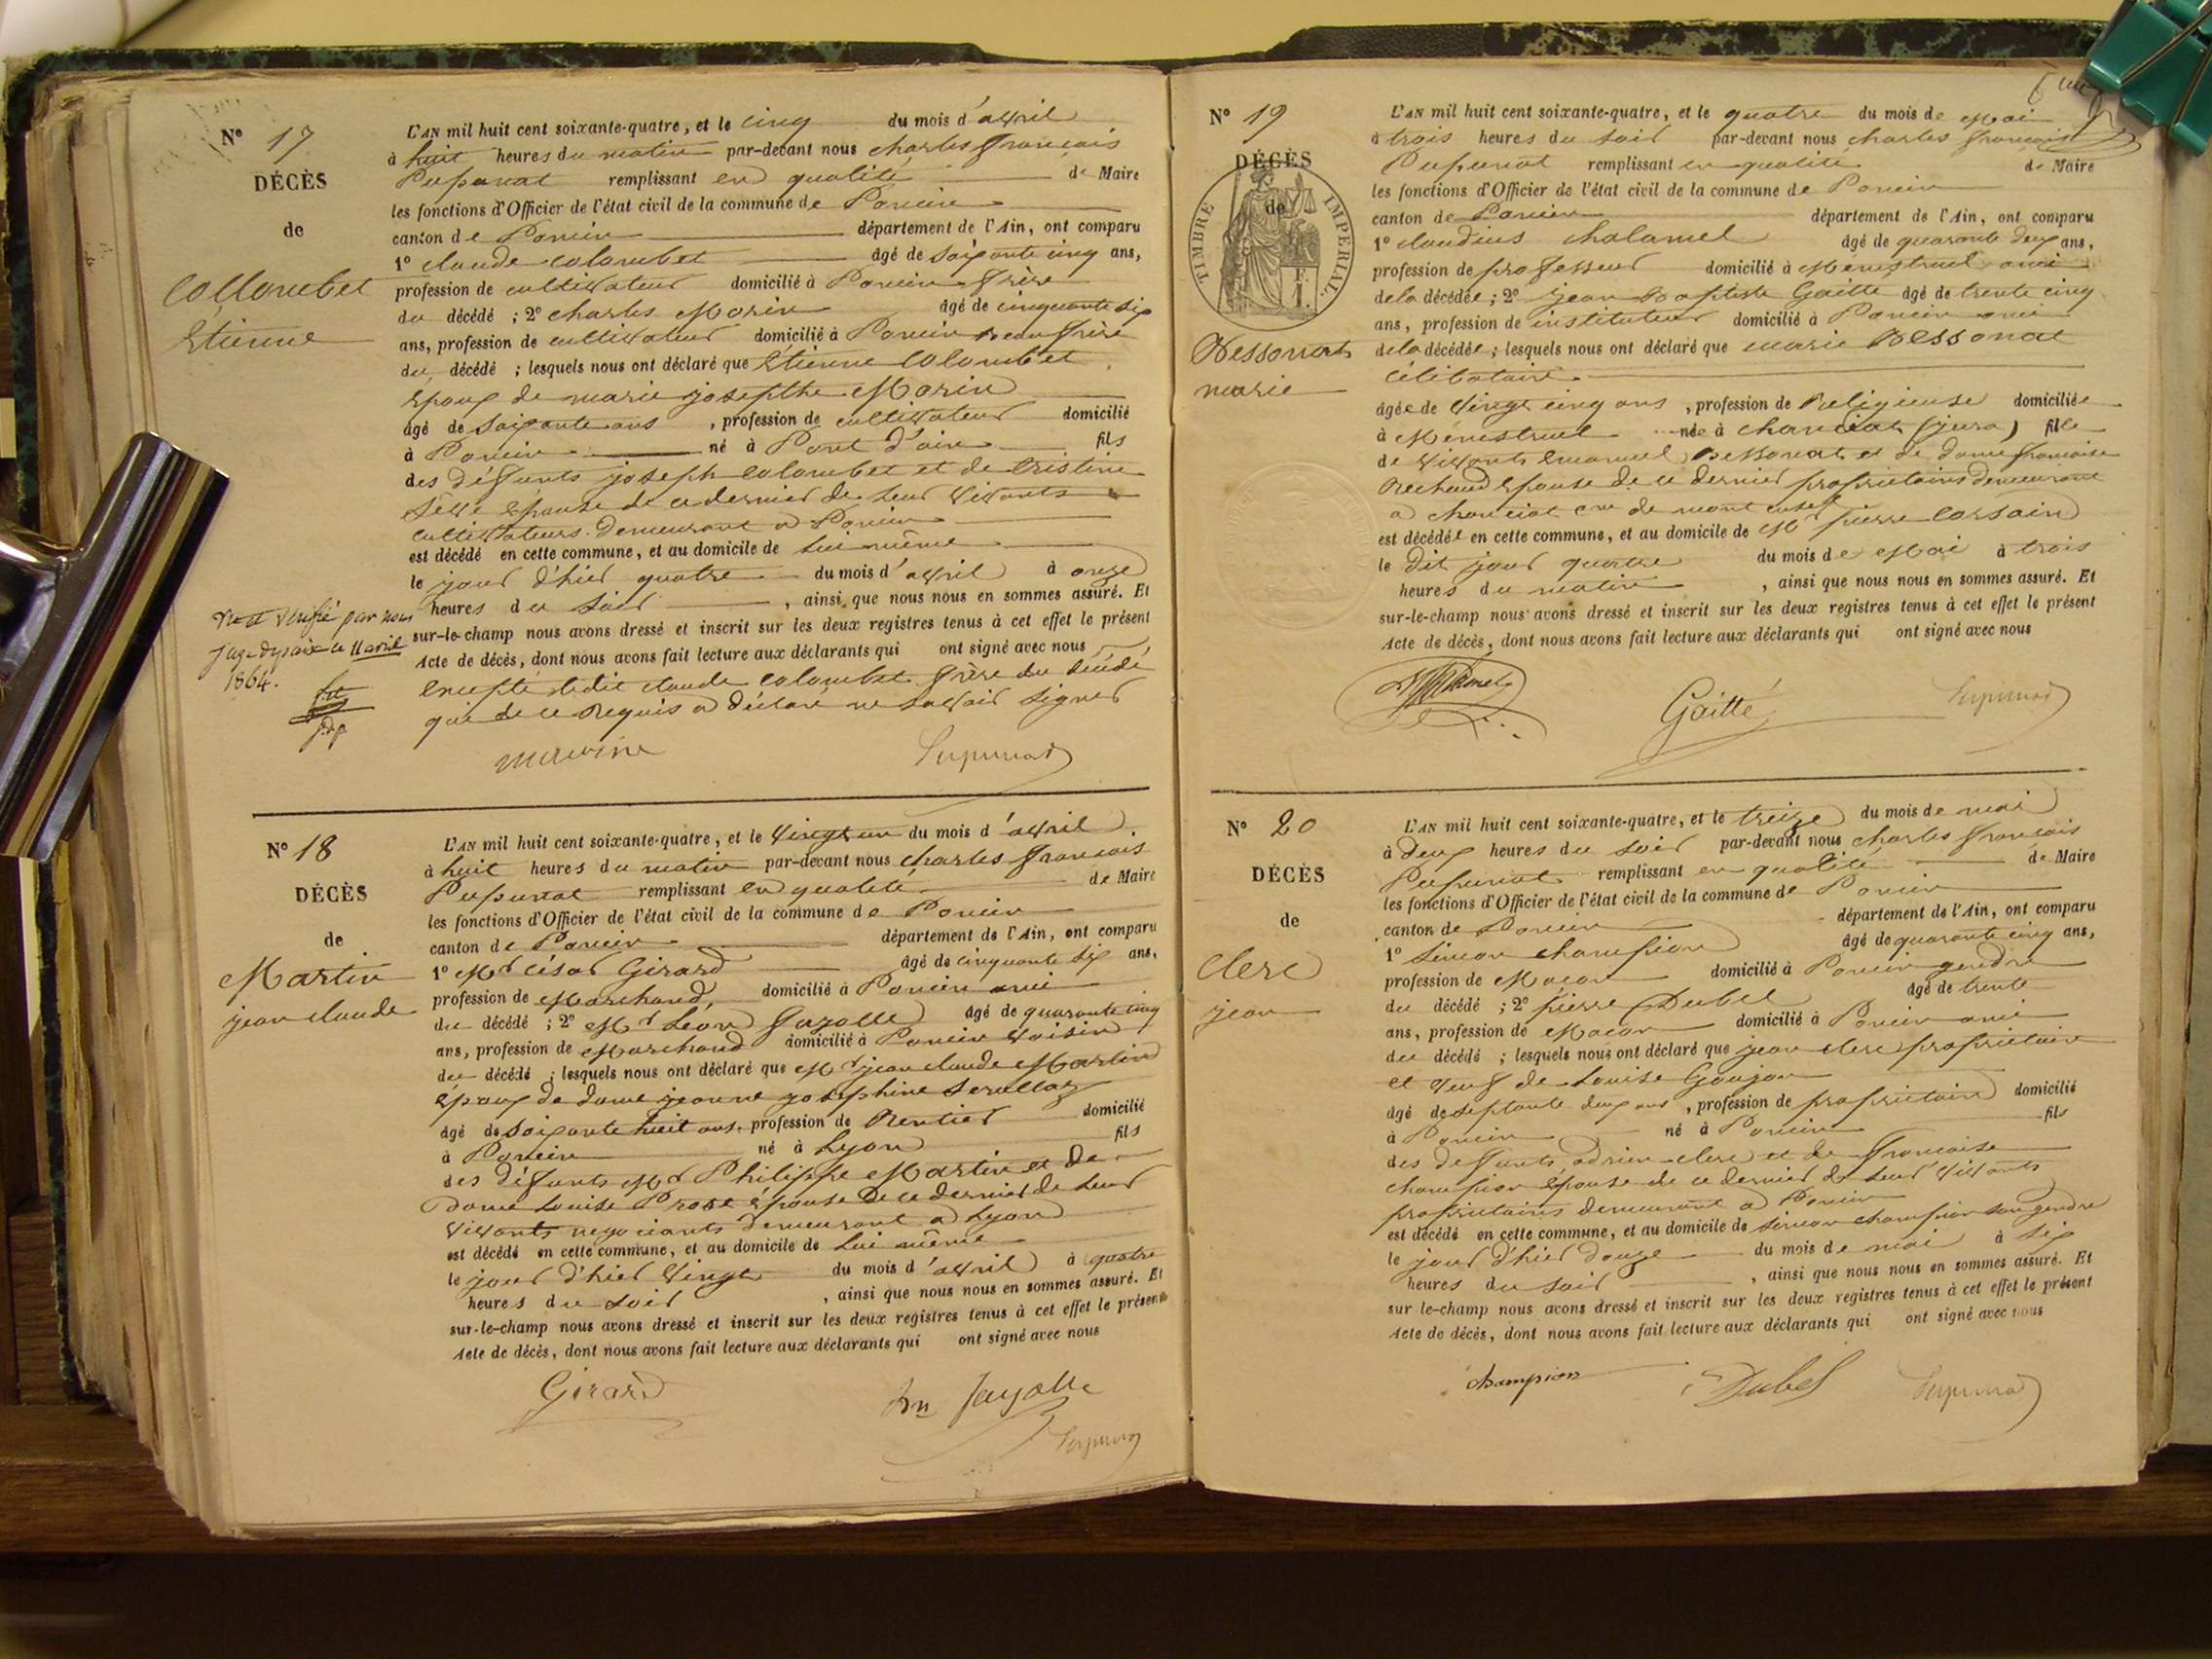 N° 17
DÉCÈS
de
Collombet
Etienne
Vu et vérifié par nous
juge de paix ce 11 avril
1864.
L'AN mil huit cent soixante-quatre, et le cinq du mois d'avril
à huit heures du matin par-devant nous charles françois
Pupunat remplissant en qualité de Maire
les fonctions d'Officier de l'état civil de la commune de Poncin
canton de Poncin département de l'Ain, ont comparu
1° claude colombet âgé de soixante cinq ans,
profession de cultivateur domicilié à Poncin frère
du décédé ; 2° charles Morin âgé de cinquante six
ans, profession de cultivateur domicilié à Poncin Beau frère
du décédé ; lesquels nous ont déclaré que Etienne Colombet
époux de marie josepthe Morin
âgé de soixante ans , profession de cultivateur domicilié
à Poncin né à Pont d'ain fils
des défunts joseph colombet et de Cristine
épouse de ce dernier de leur vivants
cultivateurs demeurant a Poncin
est décédé en cette commune, et au domicile de lui même
le jour d'hier quatre du mois d'avril à onze
heures du soir , ainsi que nous nous en sommes assuré. Et
sur-le-champ nous avons dressé et inscrit sur les deux registres tenus à cet effet le présent
Acte de décès, dont nous avons fait lecture aux déclarants qui ont signé avec nous
excepté ledit claude colombet frère du décédé
qui de ce Requis a déclaré ne savoir signer
Pupunat
N° 18
DÉCÈS
de
Martin
jean claude
L'AN mil huit cent soixante-quatre, et le vingt un du mois d'avril
à huit heures du matin par-devant nous charles françois
Pupunat remplissant en qualité de Maire
les fonctions d'Officier de l'état civil de la commune de Poncin
canton de Poncin département de l'Ain, ont comparu
1° Mr César Girard âgé de cinquante six ans,
profession de Marchand, domicilié à Poncin ami
du décédé ; 2° Mr Léon Fayolle âgé de quarante cinq
ans, profession de Marchand domicilié à Poncin voisin
du décédé ; lesquels nous ont déclaré que Mr jean claude Martin
époux de dame jeanne josephine Serullaz
âgé de soixante huit ans, profession de Rentier domicilié
à Poncin né à Lyon fils
des défunts Mr Philippe Martin et de
Dame Louise Prost épouse de ce dernier de leur
vivants negociants demeurant a Lyon
est décédé en cette commune, et au domicile de lui même
le jour d'hier vingt du mois d'avril à quatre
heures du soir , ainsi que nous nous en sommes assuré. Et
sur-le-champ nous avons dressé et inscrit sur les deux registres tenus à cet effet le présent
Acte de décès, dont nous avons fait lecture aux déclarants qui ont signé avec nous
Girard
Ln Fayolle
Pupunat
N° 19
DÉCÈS
de
TIMBRE IMPERIAL
Bessonat
marie
L'AN mil huit cent soixante-quatre, et le quatre du mois de Mai
à trois heures du soir par-devant nous charles françois
Pupunat remplissant en qualité de Maire
les fonctions d'Officier de l'état civil de la commune de Poncin
canton de Poncin département de l'Ain, ont comparu
1° claudius chalamel âgé de quarante deux ans,
profession de professeur domicilié à Menestruel ami
de la décédée ; 2° jean Baptiste Gaitte âgé de trente cinq
ans, profession de instituteur domicilié à Poncin ami
de la décédée ; lesquels nous ont déclaré que marie Bessonat
célibataire
âgée de vingt cinq ans , profession de Religieuse domiciliée
à Menestruel née à chanciat (jura) fille
de vivants Emanuel Bessonat et de dame françoise
épouse de ce dernier proprietaires demeurant
a chanciat
est décédée en cette commune, et au domicile de Mr pierre Corsain
le dit jour quatre du mois de Mai à trois
heures du matin , ainsi que nous nous en sommes assuré. Et
sur-le-champ nous avons dressé et inscrit sur les deux registres tenus à cet effet le présent
Acte de décès, dont nous avons fait lecture aux déclarants qui ont signé avec nous
Gaitte
Pupunat
N° 20
DÉCÈS
de
Clerc
jean
L'AN mil huit cent soixante-quatre, et le treize du mois de mai
à deux heures du soir par-devant nous charles françois
Pupunat remplissant en qualité de Maire
les fonctions d'Officier de l'état civil de la commune de Poncin
canton de Poncin département de l'Ain, ont comparu
1° Simon champion âgé de quarante cinq ans,
profession de Maçon domicilié à Poncin gendre
du décédé ; 2° pierre Dubel âgé de trente
ans, profession de Maçon domicilié à Poncin ami
du décédé ; lesquels nous ont déclaré que jean clerc propriétaire
et veuf de Louise Goujon
âgé de septante deux ans , profession de propriétaire domicilié
à Poncin né à Poncin fils
des defunts adrien clerc et de françoise
champion épouse de ce dernier de leur vivants
proprietaires demeurant a Poncin
est décédé en cette commune, et au domicile de simon champion son gendre
le jour d'hier douze du mois de mai à six
heures du soir , ainsi que nous nous en sommes assuré. Et
sur le-champ nous avons dressé et inscrit sur les deux registres tenus à cet effet le présent
Acte de décès, dont nous avons fait lecture aux déclarants qui ont signé avec nous
champion
Dubel
Pupunat